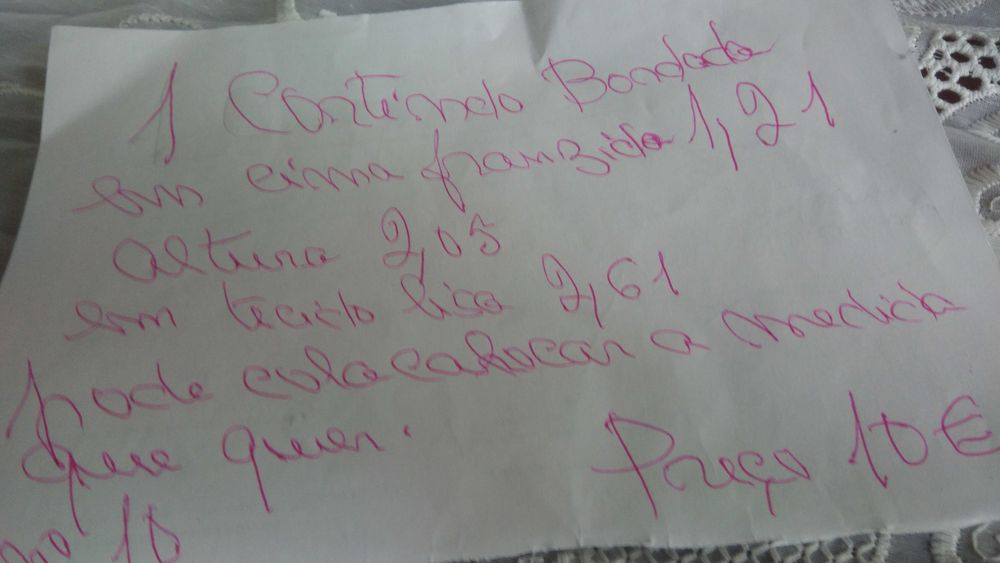 1 Cortinado Bordada
em cima franzido 1,21
altura 2,05
em tecido liso 2,61
pode colocar a medida
que quer.
Preço 10 €
nº 10